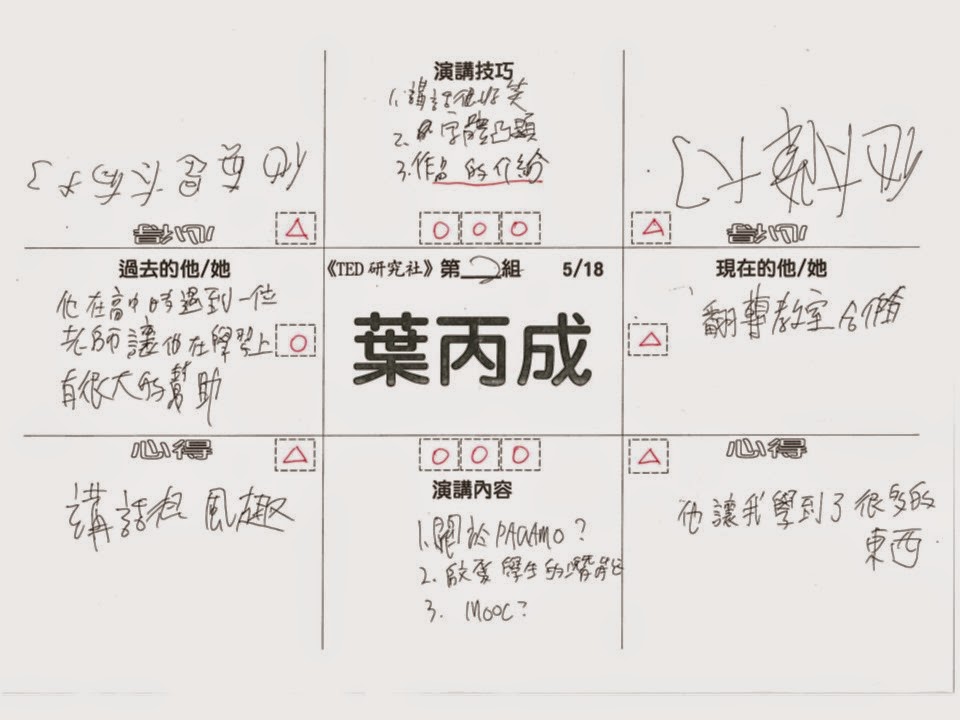 演講技巧
1.講話很好笑
2.字體凸顯
3.作品的介紹
心得
心得
過去的他/她
他在高中時遇到一位
老師讓他在學習上
有很大的幫助
《TED研究社》第2組 5/18
葉丙成
現在的他/她
翻轉教室
心得
講話很風趣
演講內容
1.關於PAGAMO?
2.啟發學生的潛能
3. MOOC?
心得
他讓我學到了很多的
東西